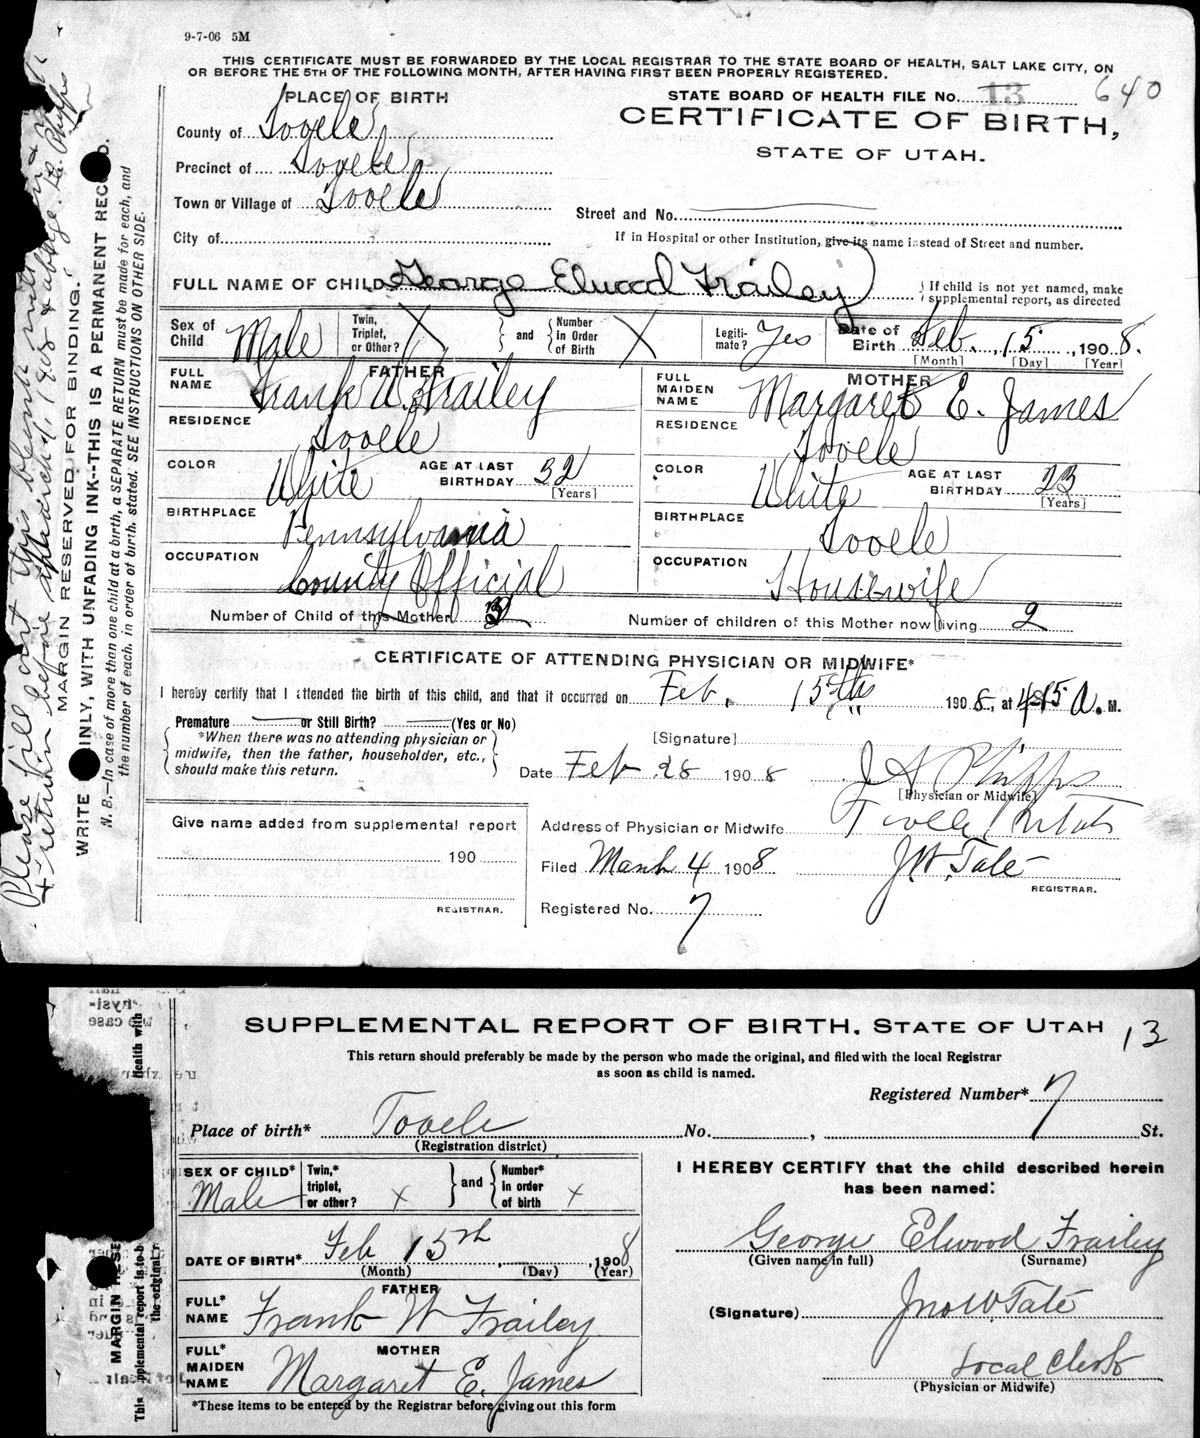 9-7-06 5M
THIS CERTIFICATE MUST BE FORWARDED BY THE LOCAL REGISTRAR TO THE STATE BOARD OF HEALTH, SALT LAKE CITY, ON
OR BEFORE THE 5TH OF THE FOLLOWING MONTH, AFTER HAVING FIRST BEEN PROPERLY REGISTERED.
PLACE OF BIRTH
STATE BOARD OF HEALTH FILE No. 13 640
CERTIFICATE OF BIRTH,
STATE OF UTAH.
County of Tooele
Precinct of Tooele
Town or Village of Tooele
Street and No.
City of
If in Hospital or other Institution, give its name instead of Street and number.
FULL NAME OF CHILD George Elwood Frailey
If child is not yet named, make
supplemental report, as directed
Sex of Child Male
Twin, Triplet, or Other? X
and
Number in Order of Birth X
Legiti-mate? Yes
Date of Birth Feb. 15, 1908.
[Month] [Day] [Year]
FATHER
FULL NAME Frank W. Frailey
RESIDENCE Tooele
COLOR White
AGE AT LAST BIRTHDAY 32
[Years]
BIRTHPLACE Pennsylvania
OCCUPATION County Official
MOTHER
FULL MAIDEN NAME Margaret E. James
RESIDENCE Tooele
COLOR White
AGE AT LAST BIRTHDAY 23
[Years]
BIRTHPLACE Tooele
OCCUPATION Housewife
Number of Child of this Mother
Number of children of this Mother now living 2
CERTIFICATE OF ATTENDING PHYSICIAN OR MIDWIFE*
I hereby certify that I attended the birth of this child, and that it occurred on Feb. 15th 1908, at 4 15 A. M.
Premature or Still Birth? (Yes or No)
*When there was no attending physician or
midwife, then the father, householder, etc.,
should make this return.
[Signature]
Date Feb 28 1908 J A Phipps
[Physician or Midwife]
Address of Physician or Midwife Tooele, Utah
Filed March 4 1908 J. W. Tate
REGISTRAR.
Registered No. 7
Give name added from supplemental report
190
REGISTRAR.
Please fill out this blank with
& return before March 4, 1908 & oblige. Dr. Phipps
MARGIN RESERVED FOR BINDING.
WRITE INLY, WITH UNFADING INK--THIS IS A PERMANENT REC D.
N. B.--In case of more than one child at a birth, a SEPARATE RETURN must be made for each, and
the number of each, in order of birth, stated. SEE INSTRUCTIONS ON OTHER SIDE.
SUPPLEMENTAL REPORT OF BIRTH. STATE OF UTAH 13
This return should preferably be made by the person who made the original, and filed with the local Registrar
as soon as child is named.
Registered Number* 7
Place of birth* Tooele No. , St.
(Registration district)
SEX OF CHILD* Male
Twin,* triplet, or other? x
and
Number* in order of birth x
DATE OF BIRTH* Feb 15th, 1908
(Month) (Day) (Year)
FATHER
FULL* NAME Frank W Frailey
MOTHER
FULL* MAIDEN NAME Margaret E. James
*These items to be entered by the Registrar before giving out this form
I HEREBY CERTIFY that the child described herein
has been named:
George Elwood Frailey
(Given name in full) (Surname)
(Signature) Jno W Tate
Local Clerk
(Physician or Midwife)
MARGIN RESE
This pplemental report is to b
the original r
Health with